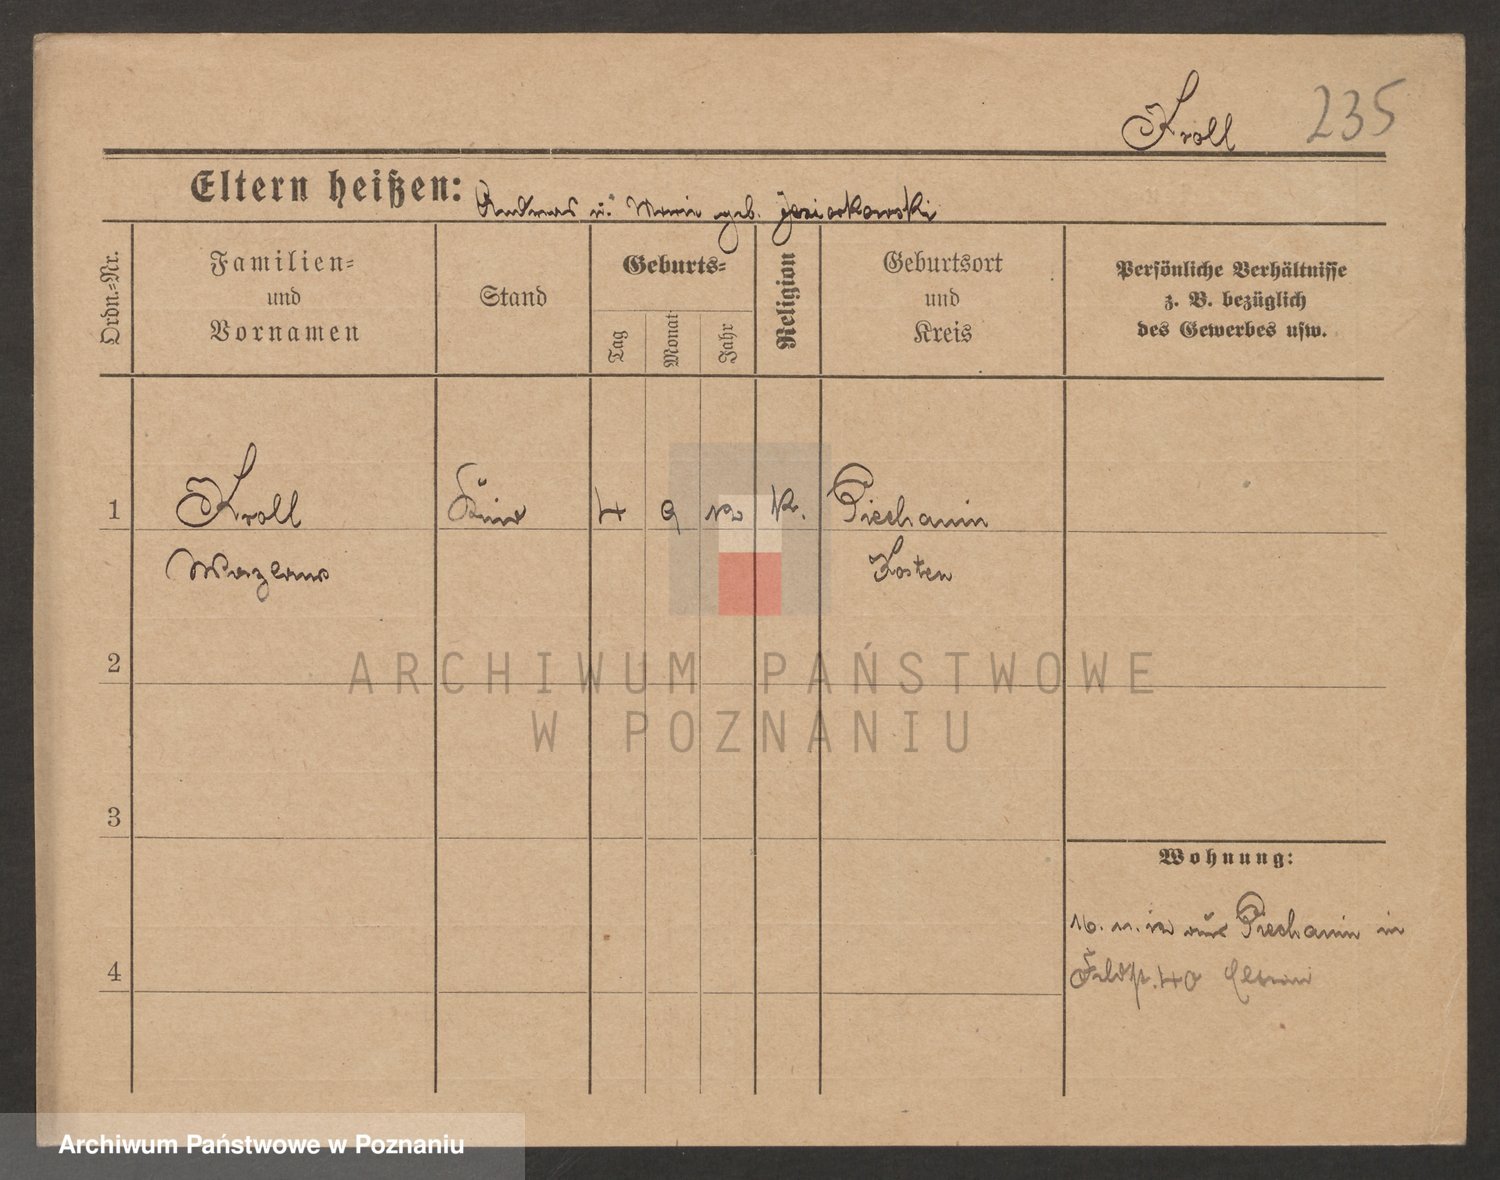 Kroll 235
Eltern heißen: Andreas u. Marie geb. Jeziorkowski
Ordn.=Nr.
Familien=
und
Vornamen
Stand
Geburts=
Tag
Monat
Jahr
Religion
Geburtsort
und
Kreis
Persönliche Verhältnisse
z. B. bezüglich
des Gewerbes usw.
1 Kroll Kind 4 9 12 K. Piechanin
Wazlaus Kosten
2
3
4
Wohnung:
16. 11. 12 aus Piechanin in
Feldstr. 40
ARCHIWUM PAŃSTWOWE
W POZNANIU
Archiwum Państwowe w Poznaniu